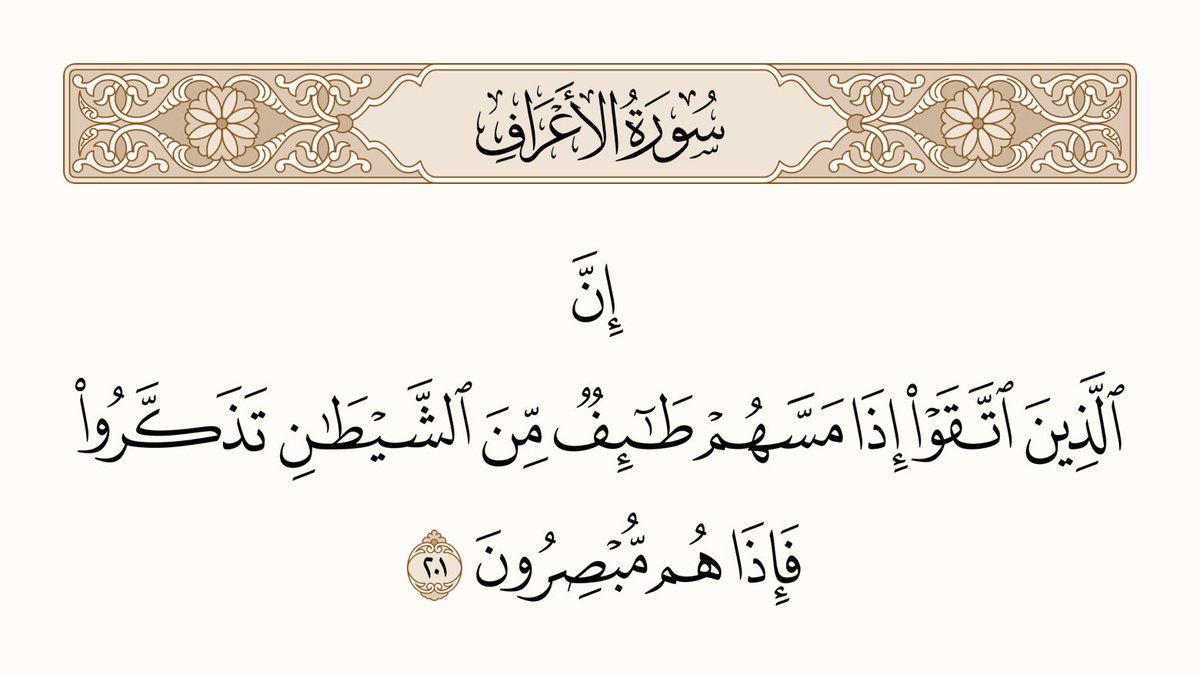 سُورَةُ الأَعْرَافِ
إِنَّ
ٱلَّذِينَ ٱتَّقَوْا۟ إِذَا مَسَّهُمْ طَـٰٓئِفٌ مِّنَ ٱلشَّيْطَـٰنِ تَذَكَّرُوا۟
فَإِذَا هُم مُّبْصِرُونَ ٢٠١